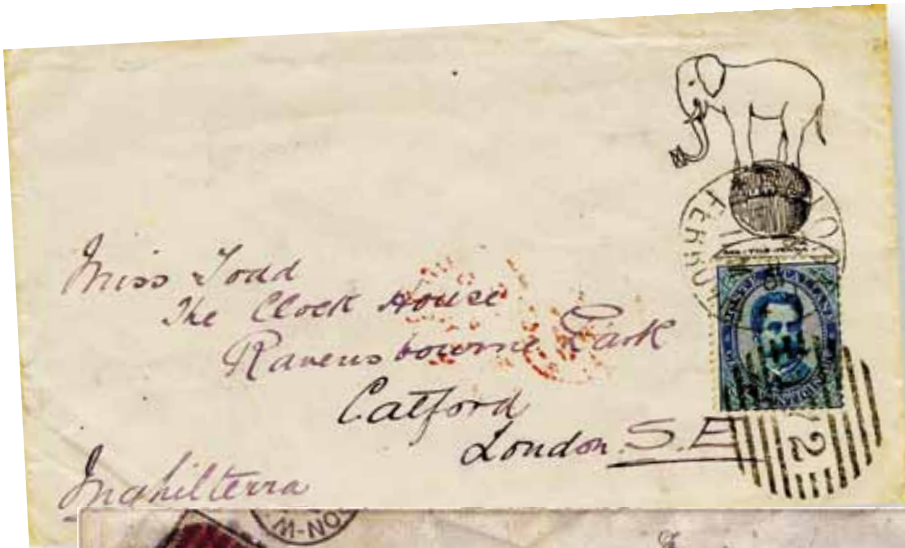 Miss Todd
The Clock House
Ravensbourne Park
Catford
London. S.E
Inghilterra
FERRO
72
ON-W